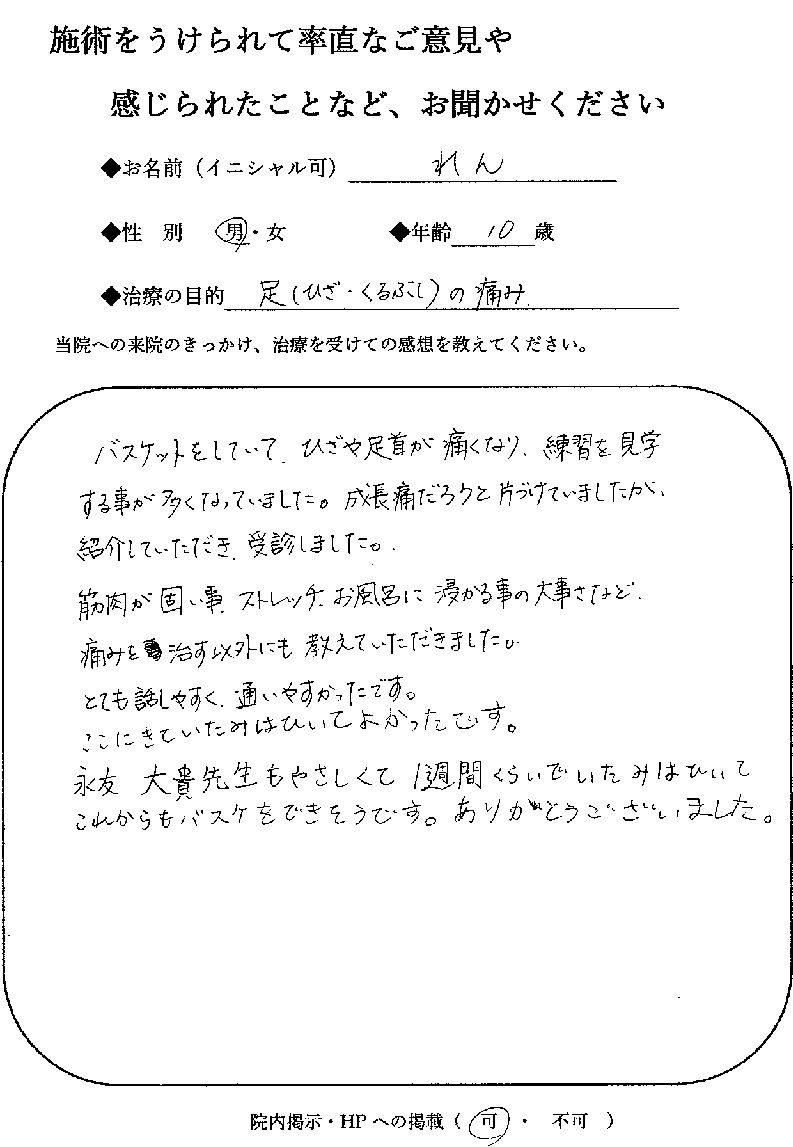 施術をうけられて率直なご意見や
感じられたことなど、お聞かせください
◆お名前（イニシャル可） れん
◆性 別 男・女 ◆年齢 10 歳
◆治療の目的 足(ひざ・くるぶし)の痛み
当院への来院のきっかけ、治療を受けての感想を教えてください。
バスケットをしていて、ひざや足首が痛くなり、練習を見学
する事が多くなっていました。成長痛だろうと片づけていましたが、
紹介していただき、受診しました。
筋肉が固い事、ストレッチ、お風呂に浸かる事の大事さなど、
痛みを治す以外にも教えていただきました。
とても話しやすく、通いやすかったです。
ここにきていたみはひいてよかったです。
永友 大貴先生もやさしくて1週間くらいでいたみはひいて
これからもバスケをできそうです。ありがとうございました。
院内掲示・HPへの掲載（ 可 ・ 不可 ）